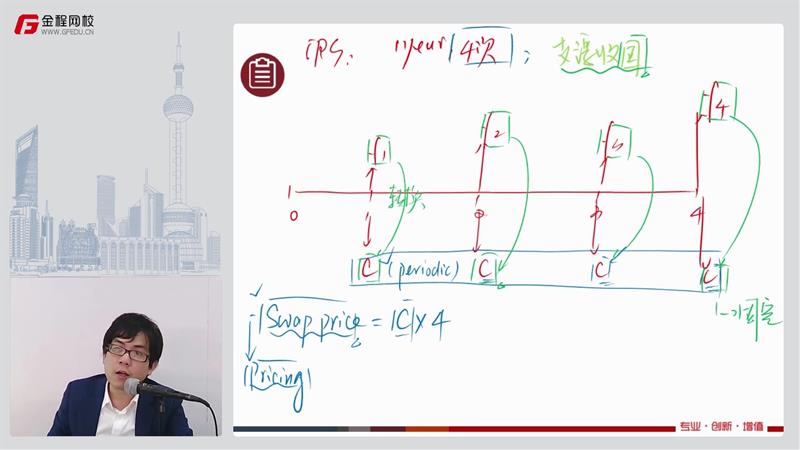 金程网校
WWW.GFEDU.CN
IRS: 1 year 4次; 支浮收固
1 2 3 4
0 1 4
C (periodic) C C C
Swap price = C × 4
Pricing
专业·创新·增值